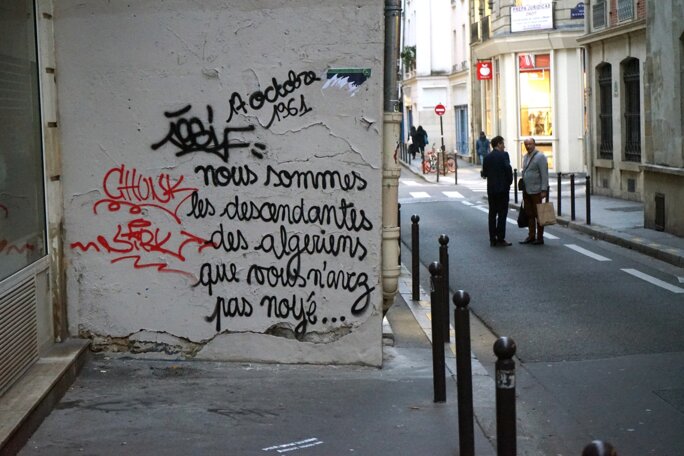 17 octobre
1961
nous sommes
les descendantes
des algeriens
que vous n'avez
pas noyé...
CHUNK